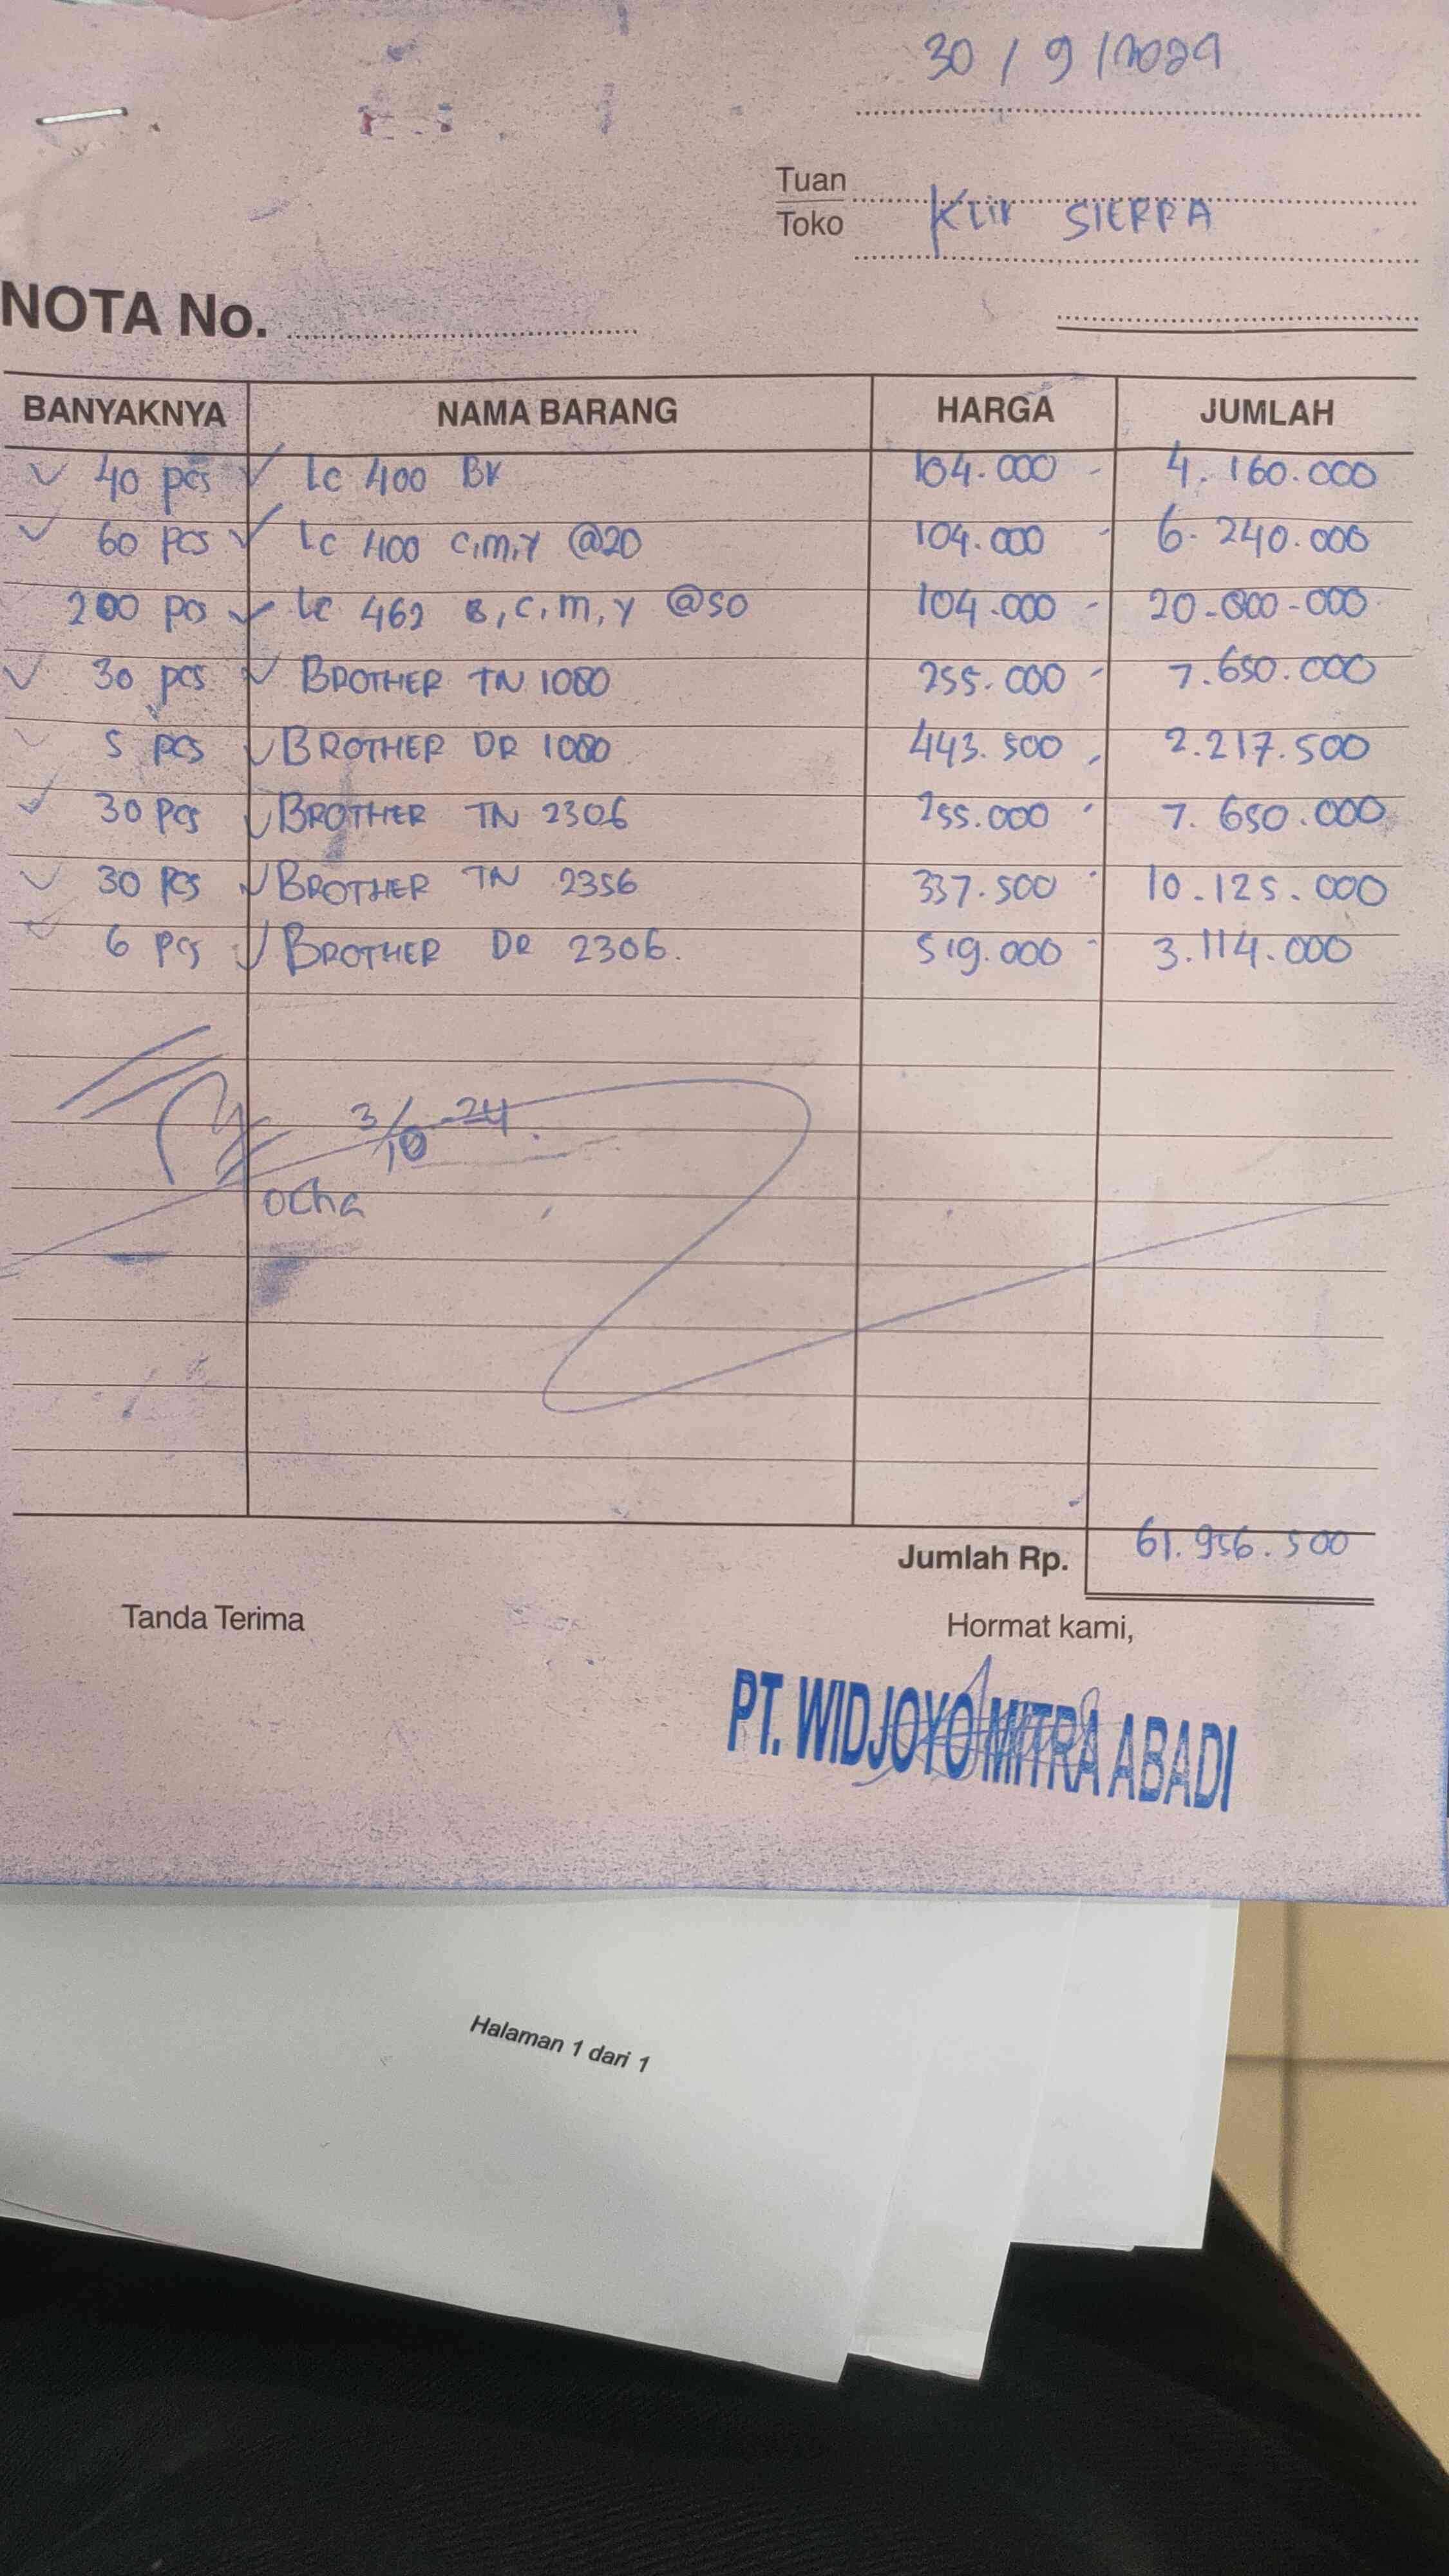 30 / 9 / 2024
Tuan
Toko
KLIK SIERRA
NOTA No.
BANYAKNYA NAMA BARANG HARGA JUMLAH
40 pcs LC 400 BK 104.000 4.160.000
60 pcs LC 400 C,M,Y @20 104.000 6.240.000
200 pcs LC 462 B,C,M,Y @50 104.000 20.800.000
30 pcs BROTHER TN 1080 255.000 7.650.000
5 pcs BROTHER DR 1080 443.500 2.217.500
30 PCS BROTHER TN 2306 255.000 7.650.000
30 PCS BROTHER TN 2356 337.500 10.125.000
6 PCS BROTHER DR 2306. 519.000 3.114.000
3/10-24.
ocha
Jumlah Rp. 61.956.500
Tanda Terima Hormat kami,
PT. WIDJOYO MITRA ABADI
Halaman 1 dari 1